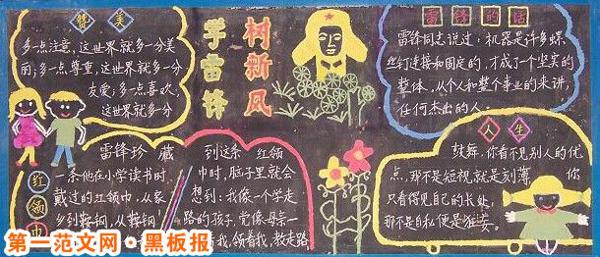 赞美
多一点注意,这世界就多一分美
丽;多一点尊重,这世界就多一分
友爱;多一点喜欢,
这世界就多一分
学雷锋
树新风
雷锋的话
雷锋同志说过:机器是许多螺
丝钉连接和固定的,才成了一个坚实的
整体,从个人和整个事业的来讲,
任何杰出的人。
红领巾
雷锋珍藏
一条他在小学读书时,
戴过的红领巾,从家
乡到鞍钢,从鞍钢
到这条红领
巾时,脑子里就会
想到:我像一个学走
路的孩子,党像母亲一
我,领着我,教走路
人生
鼓舞,你看不见别人的优
点,那不是短视就是刻薄 你
只看得见自己的长处,
那不是自私便是狂妄。
第一范文网·黑板报